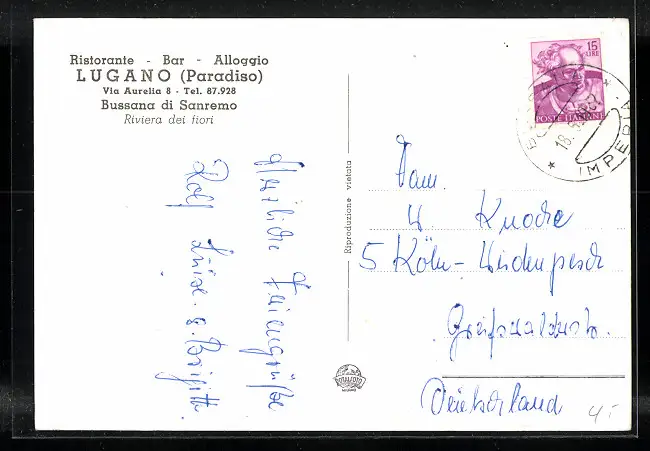 Ristorante - Bar - Alloggio
LUGANO (Paradiso)
Via Aurelia 8 - Tel. 87.928
Bussana di Sanremo
Riviera dei fiori
Herzliche Feriengrüße
Rolf Luise u. Brigitte
Riproduzione vietata
15
LIRE
POSTE ITALIANE
18.
IMPERIA
Fam.
W Knoche
5 Köln-Weidenpesch
Greifswalderstr.
Deutschland
4,-